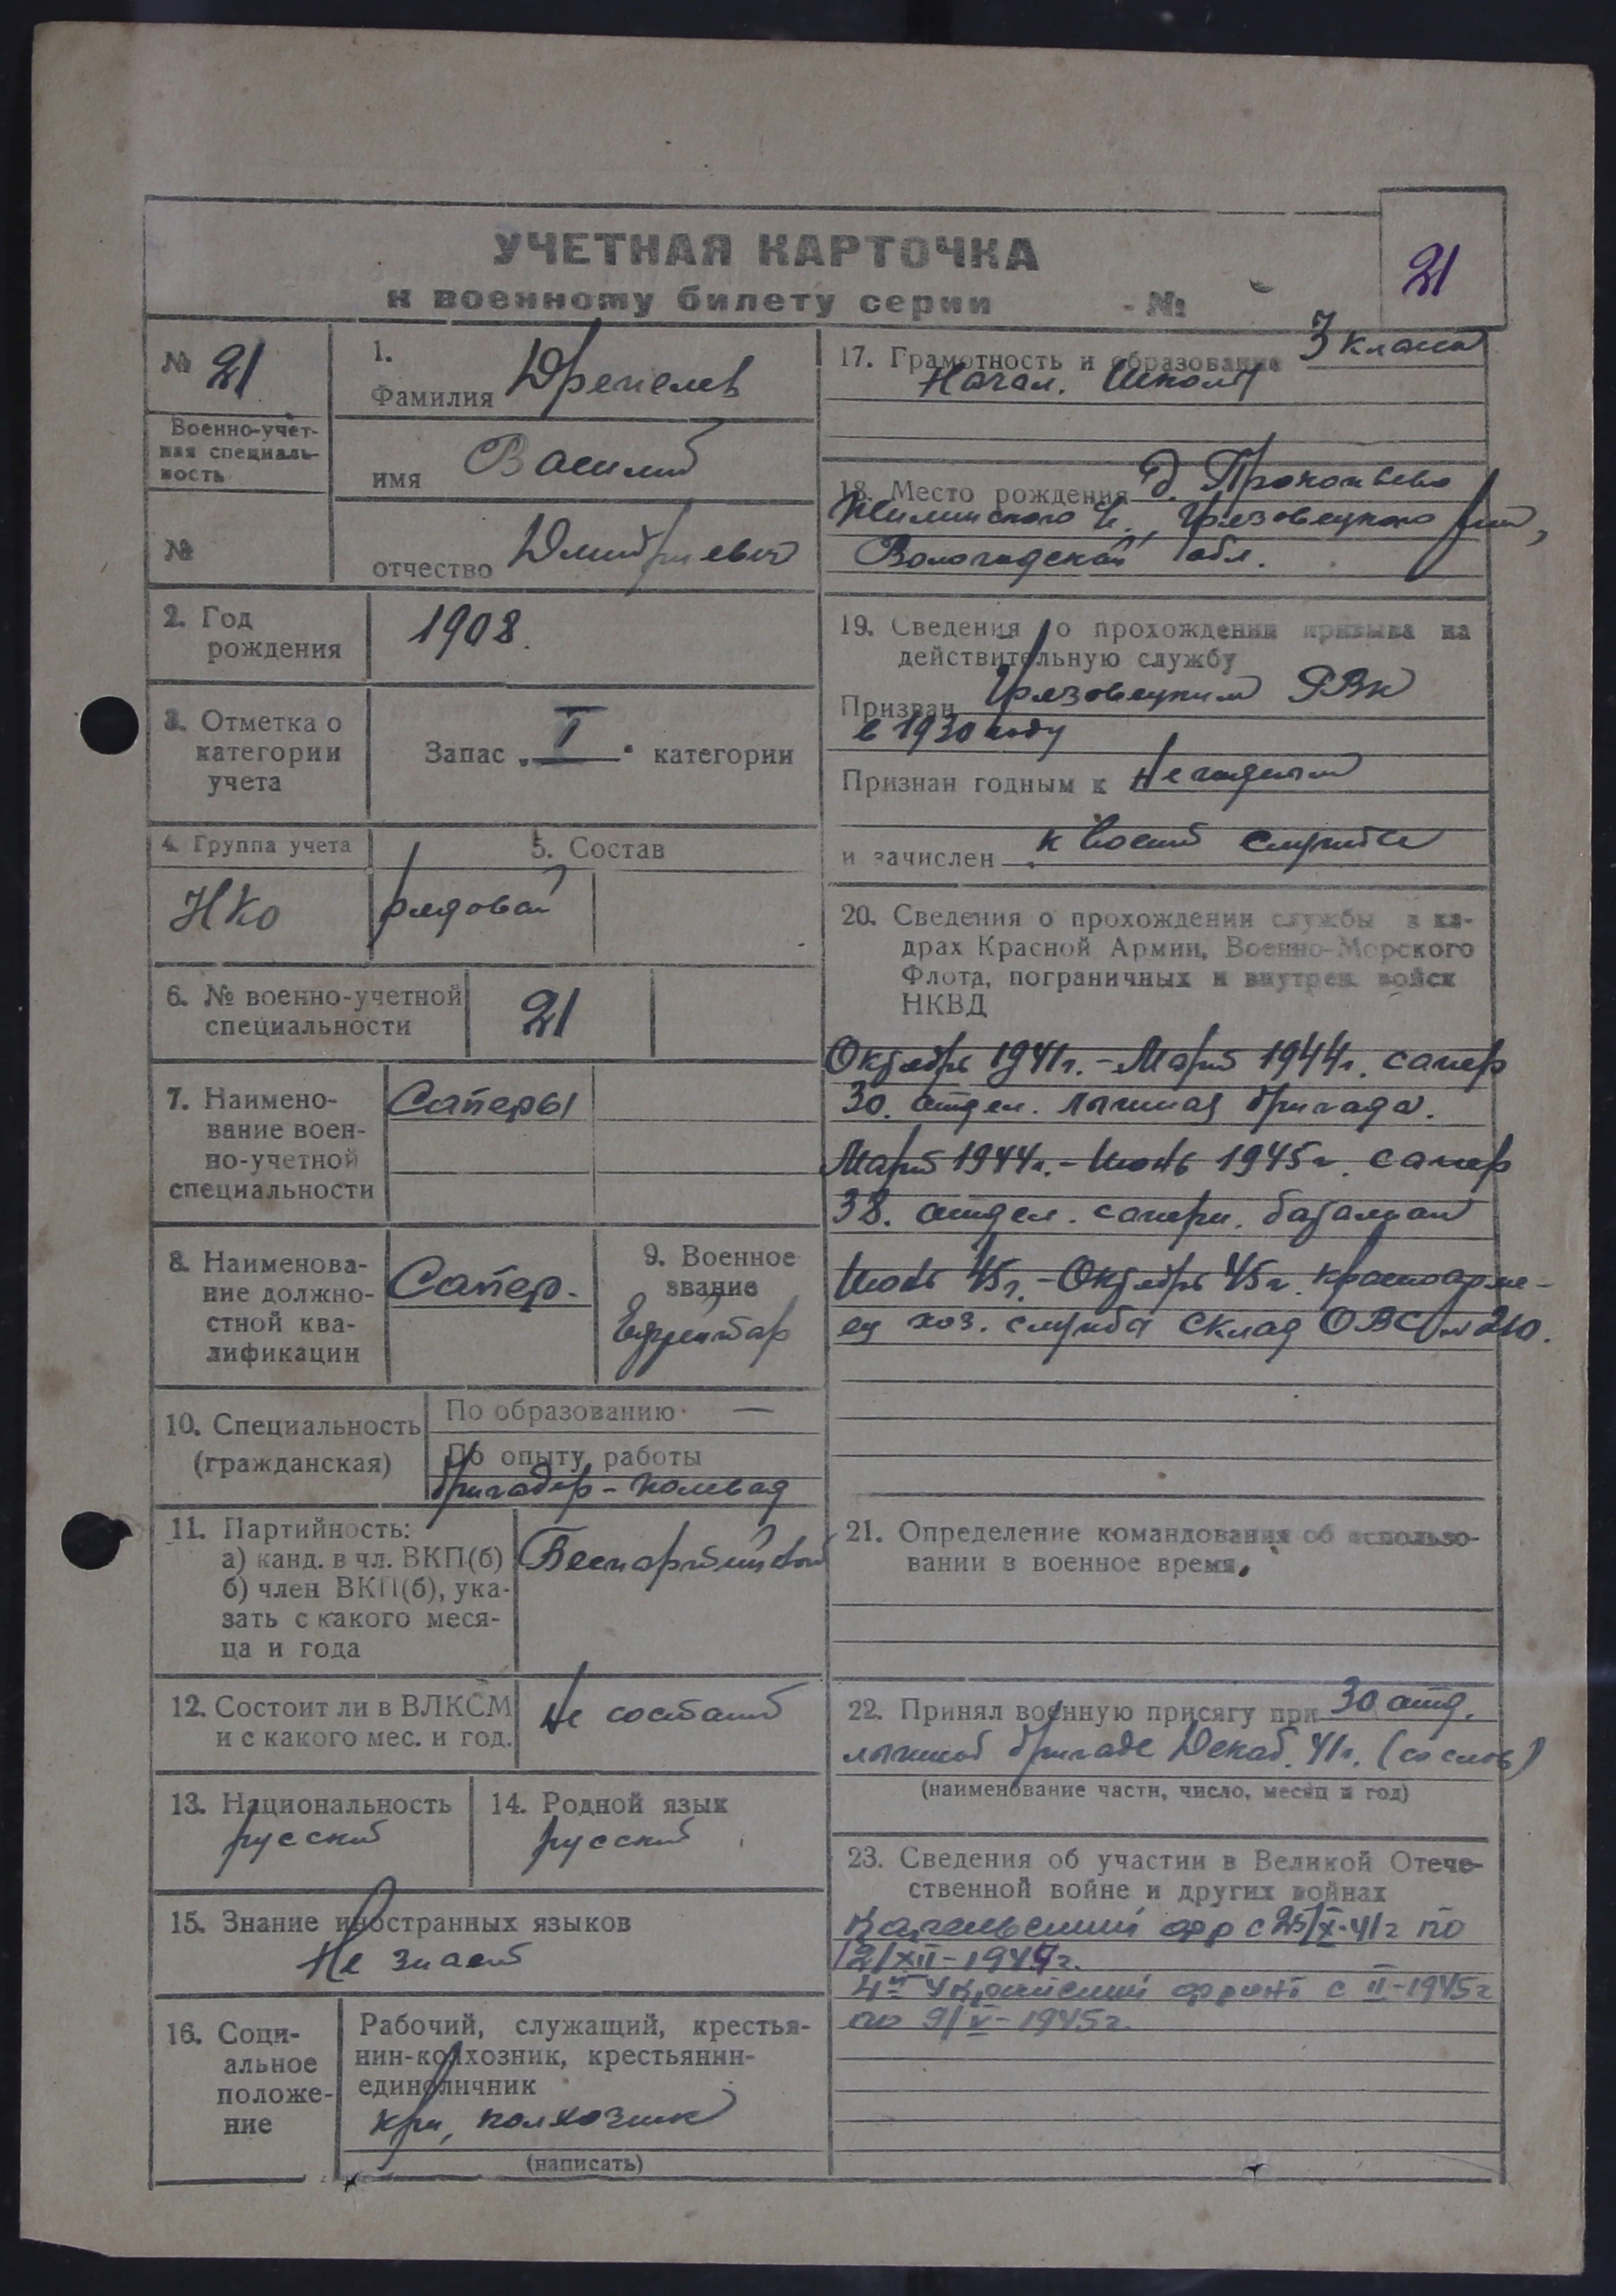 УЧЕТНАЯ КАРТОЧКА
к военному билету серии № 
21
№ 21
Военно-учет-
ная специаль-
ность
№
1.
Фамилия
имя Василий
отчество Дмитриевич
2. Год
рождения
1908.
3. Отметка о
категории
учета
Запас „I“ категории
4. Группа учета
НКО
5. Состав
рядовой
6. № военно-учетной
специальности
21
7. Наимено-
вание воен-
но-учетной
специальности
Саперы
8. Наименова-
ние должно-
стной ква-
лификации
Сапер.
9. Военное
звание
Ефрейтор
10. Специальность
(гражданская)
По образованию —
По опыту работы
бригадир-полевод
11. Партийность:
а) канд. в чл. ВКП(б)
б) член ВКП(б), ука-
зать с какого меся-
ца и года
Беспартийный
12. Состоит ли в ВЛКСМ
и с какого мес. и год.
Не состоит
13. Национальность
русский
14. Родной язык
русский
15. Знание иностранных языков
Не знает
16. Соци-
альное
положе-
ние
Рабочий, служащий, крестья-
нин-колхозник, крестьянин-
единоличник
кр-н, колхозник
(написать)
17. Грамотность и образование 3 класса
Начал. школы
18. Место рождения д. Прокопьево
Грязовецкого р-на,
Вологодской обл.
19. Сведения о прохождении призыва на
действительную службу
Призван Грязовецким РВК
в 1930 году
Признан годным к Негодным
и зачислен к воен. службе
20. Сведения о прохождении службы в ка-
драх Красной Армии, Военно-Морского
Флота, пограничных и внутрен. войск
НКВД
Октябрь 1941г. - Март 1944г. сапер
30. отдел. лыжная бригада.
Март 1944г. - Июнь 1945г. сапер
38. отдел. саперн. баталион
Июнь 45г. - Октябрь 45г. красноарме-
ец хоз. служба склад ОВС № 210.
21. Определение командования об использо-
вании в военное время.
22. Принял военную присягу при 30 отд.
лыжной бригаде Декаб. 41г. (со слов)
(наименование части, число, месяц и год)
23. Сведения об участии в Великой Отече-
ственной войне и других войнах
Карельский фр с 25/X-41г по
XII-1944г.
4й Украйнский фронт с II-1945г
по 9/V-1945г.